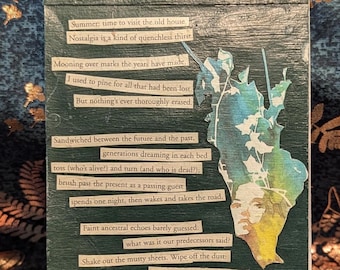 Summer; time to visit the old house.
Nostalgia is a kind of quenchless thirst
Mooning over marks the years have made,
I used to pine for all that had been lost
But nothing's ever thoroughly erased.
Sandwiched between the future and the past,
generations dreaming in each bed
toss (who's alive?) and turn (and who is dead?),
brush past the present as a passing guest
spends one night, then wakes and takes the road.
Faint ancestral echoes barely guessed:
what was it our predecessors said?
Shake out the musty sheets. Wipe off the dust: